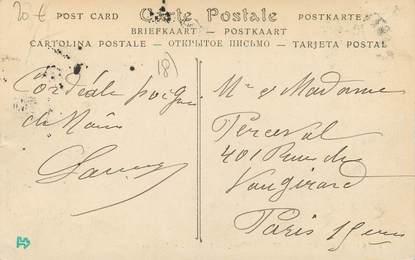 20 €
POST CARD Carte Postale POSTKARTE
BRIEFKAART — POSTKAART
CARTOLINA POSTALE — ОТКРЫТОЕ ПИСЬМО — TARJETA POSTAL
(18)
Cordiale poignée
de Main
Mr et Madame
Perceval
401 Rue de
Vaugirard
Paris 15eme